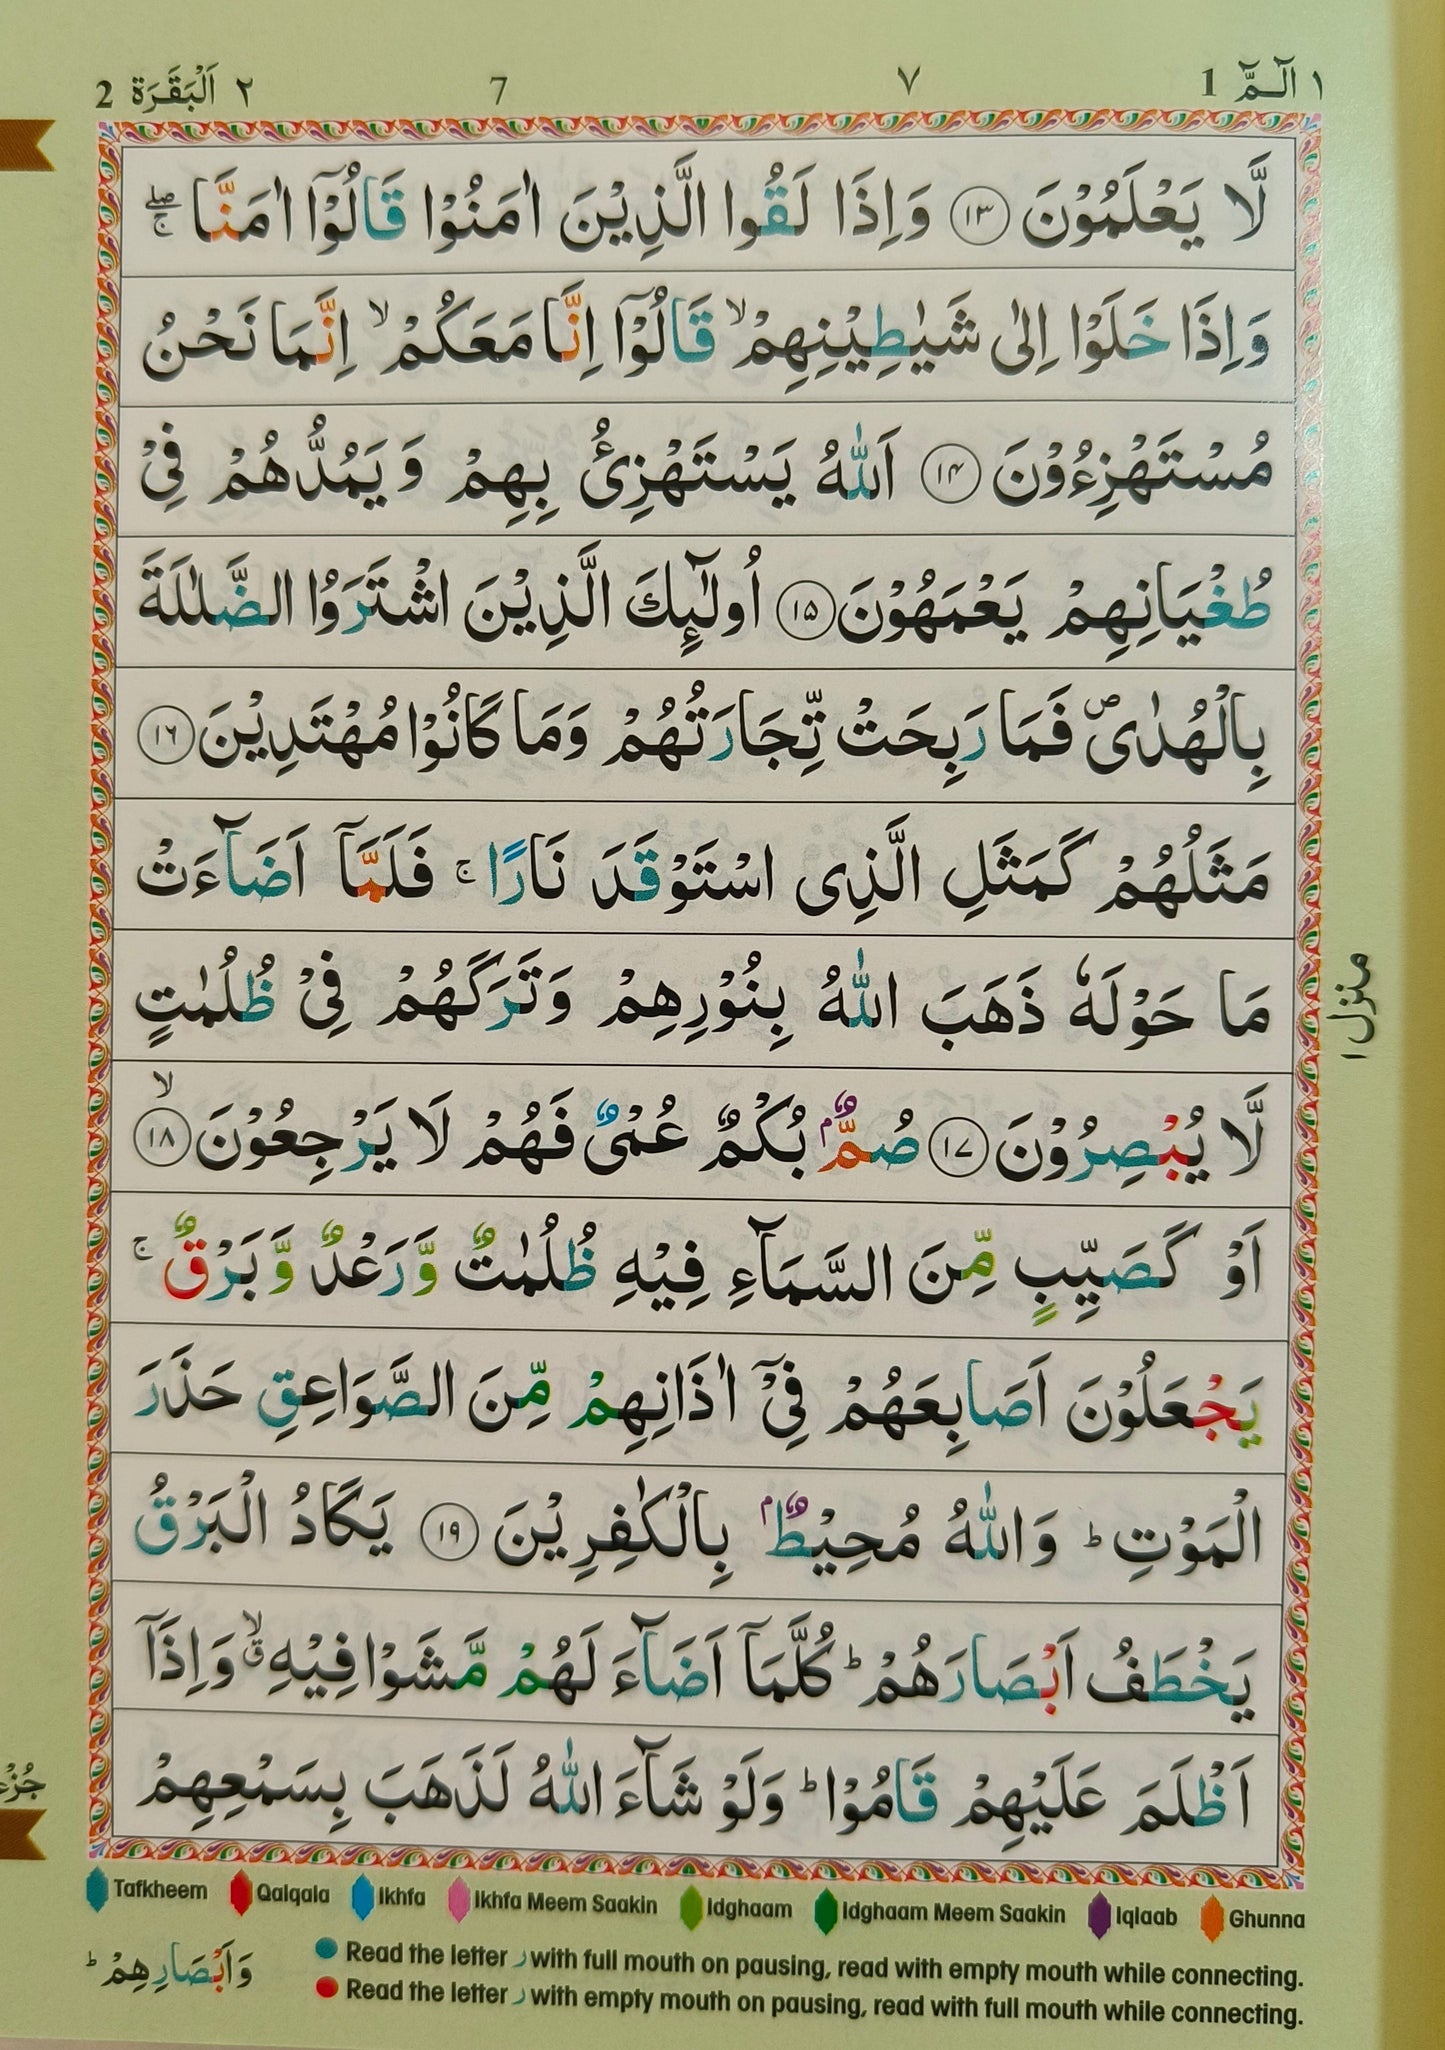 ١ الٓـمّٓ 1 ٧ 7 ٢ اَلْبَقَرَة 2
لَّا يَعْلَمُوْنَ ١٣ وَاِذَا لَقُوا الَّذِيْنَ اٰمَنُوْا قَالُوْٓا اٰمَنَّا ۚۖ
وَاِذَا خَلَوْا اِلٰى شَيٰطِيْنِهِمْ ۙ قَالُوْٓا اِنَّا مَعَكُمْ ۙ اِنَّمَا نَحْنُ
مُسْتَهْزِءُوْنَ ١٤ اَللّٰهُ يَسْتَهْزِئُ بِهِمْ وَيَمُدُّهُمْ فِيْ
طُغْيَانِهِمْ يَعْمَهُوْنَ ١٥ اُولٰٓئِكَ الَّذِيْنَ اشْتَرَوُا الضَّلٰلَةَ
بِالْهُدٰى ۪ فَمَا رَبِحَتْ تِّجَارَتُهُمْ وَمَا كَانُوْا مُهْتَدِيْنَ ١٦
مَثَلُهُمْ كَمَثَلِ الَّذِى اسْتَوْقَدَ نَارًا ۚ فَلَمَّآ اَضَآءَتْ
مَا حَوْلَهٗ ذَهَبَ اللّٰهُ بِنُوْرِهِمْ وَتَرَكَهُمْ فِيْ ظُلُمٰتٍ
لَّا يُبْصِرُوْنَ ١٧ صُمٌّۢ بُكْمٌ عُمْيٌ فَهُمْ لَا يَرْجِعُوْنَ ۙ ١٨
اَوْ كَصَيِّبٍ مِّنَ السَّمَآءِ فِيْهِ ظُلُمٰتٌ وَّرَعْدٌ وَّبَرْقٌ ۚ
يَجْعَلُوْنَ اَصَابِعَهُمْ فِيْٓ اٰذَانِهِمْ مِّنَ الصَّوَاعِقِ حَذَرَ
الْمَوْتِ ؕ وَاللّٰهُ مُحِيْطٌۢ بِالْكٰفِرِيْنَ ١٩ يَكَادُ الْبَرْقُ
يَخْطَفُ اَبْصَارَهُمْ ؕ كُلَّمَآ اَضَآءَ لَهُمْ مَّشَوْا فِيْهِ ۙۗ وَاِذَآ
اَظْلَمَ عَلَيْهِمْ قَامُوْا ؕ وَلَوْ شَآءَ اللّٰهُ لَذَهَبَ بِسَمْعِهِمْ
منزل ١
Tafkheem Qalqala Ikhfa Ikhfa Meem Saakin Idghaam Idghaam Meem Saakin Iqlaab Ghunna
Read the letter ر with full mouth on pausing, read with empty mouth while connecting.
Read the letter ر with empty mouth on pausing, read with full mouth while connecting.
وَاَبْصَارِهِمْ ؕ